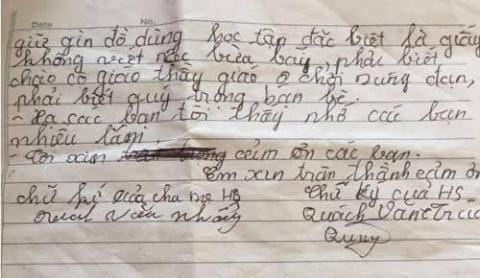 Date No.
giữ gìn đồ dùng học tận đặc biệt là giấy
không viết bừa bãy, phải biết
chào cô giáo thầy giáo chơi nưng đạn,
phải biết quý trọng bán bè.
- Xa các bạn tôi thấy nhớ các bạn
nhiều lắm.
- Tôi xin cảm ơn các bạn.
Em xin trân thành cảm ơn
chữ kí của cha mẹ HS
Chữ ký của HS
Quách Văn
Quny